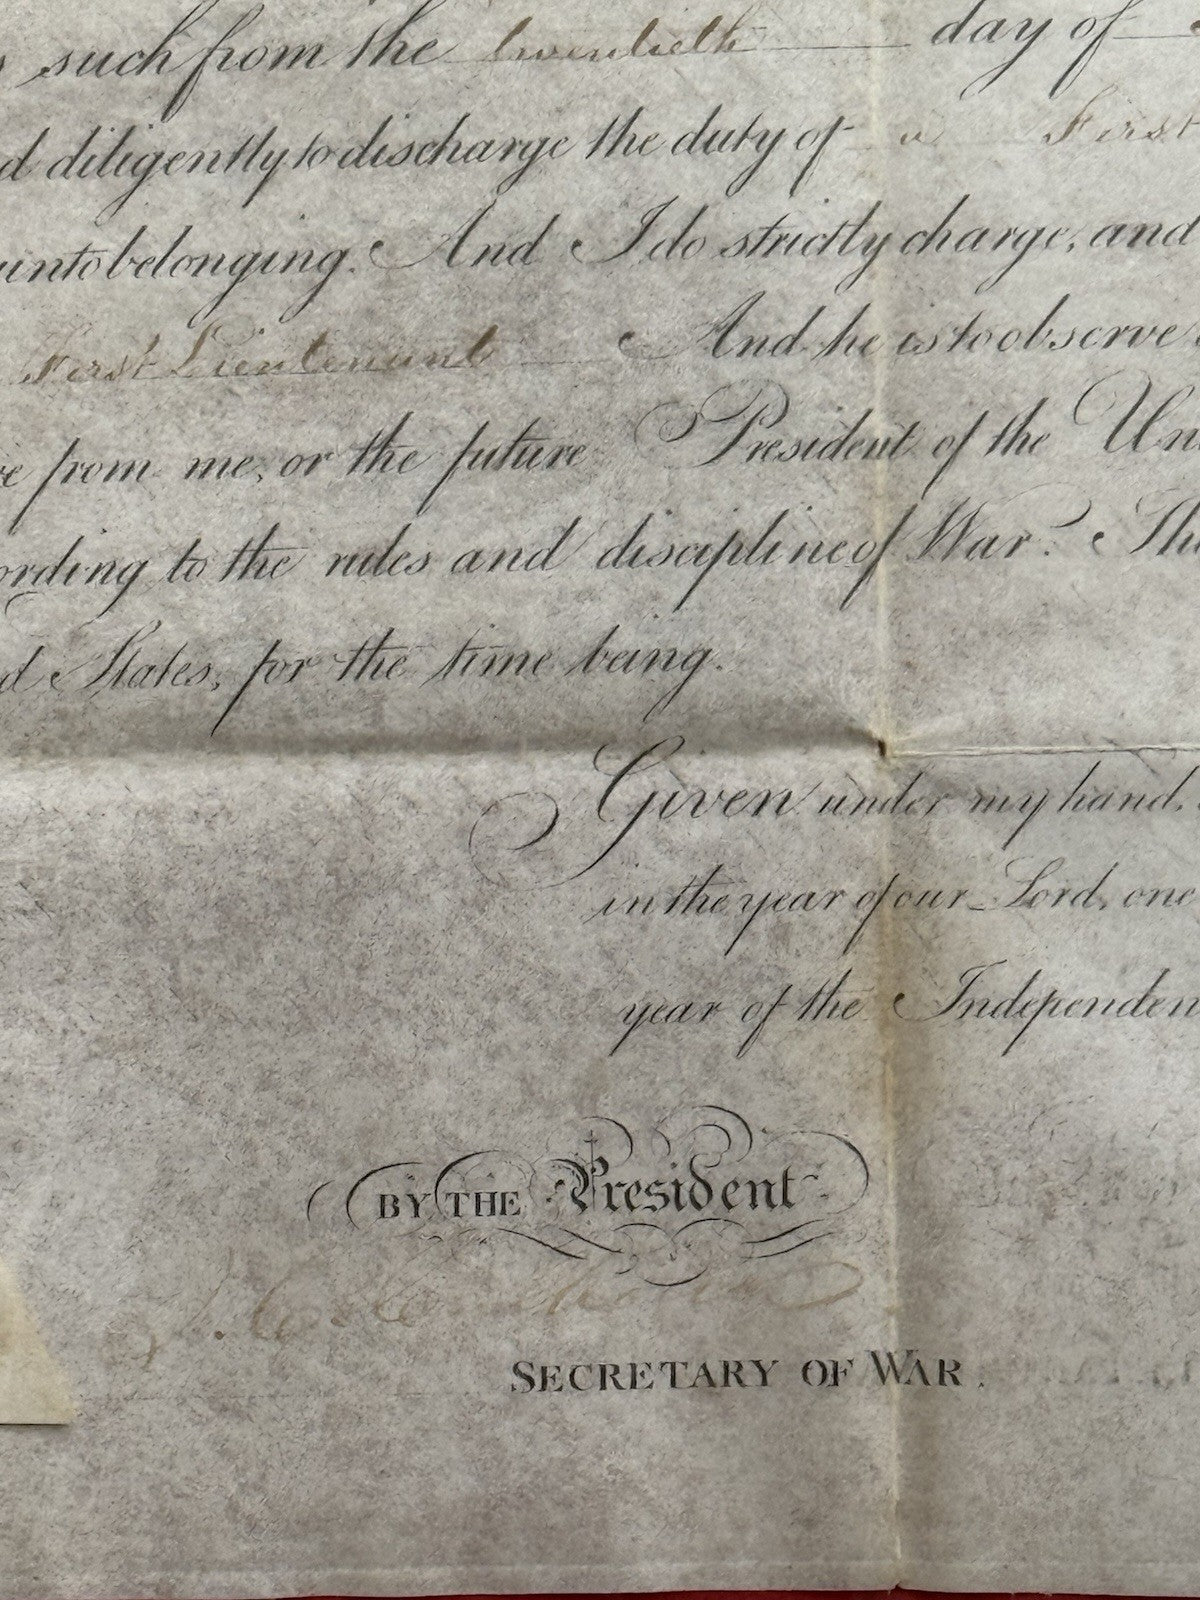 such from the twentieth day of
diligently to discharge the duty of a First
unto belonging. And I do strictly charge, and
First Lieutenant And he is to observe
from me, or the future President of the Un
ording to the rules and discipline of War. Thi
d States, for the time being.
Given under my hand,
in the year of our Lord, one
year of the Independen
BY THE President
J. C. Calhoun
SECRETARY OF WAR.